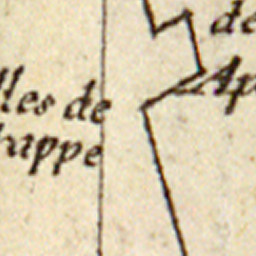 de
lles de
Ap